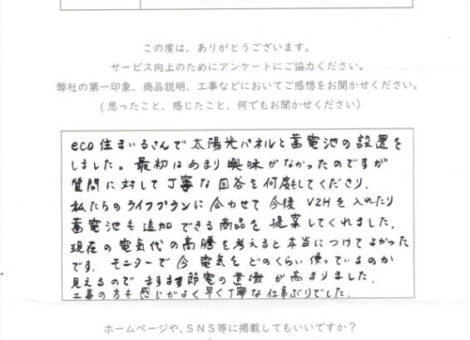 この度は、ありがとうございます。
サービス向上のためにアンケートにご協力ください。
弊社の第一印象、商品説明、工事などにおいてご感想をお聞かせください。
(思ったこと、感じたこと、何でもお聞かせください)
eco住まいるさんで太陽光パネルと蓄電池の設置を
しました。最初はあまり興味がなかったのですが
質問に対して丁寧な回答を何度もしてくださり、
私たちのライフプランに合わせて今後V2Hを入れたり
蓄電池も追加できる商品を提案してくれました。
現在の電気代の高騰を考えると本当につけてよかった
です。モニターで今電気をどのくらい使っているのか
見えるのでますます節電の意識が高まりました。
工事の方も感じがよく早く丁寧な仕事ぶりでした。
ホームページや、SNS等に掲載してもいいですか?